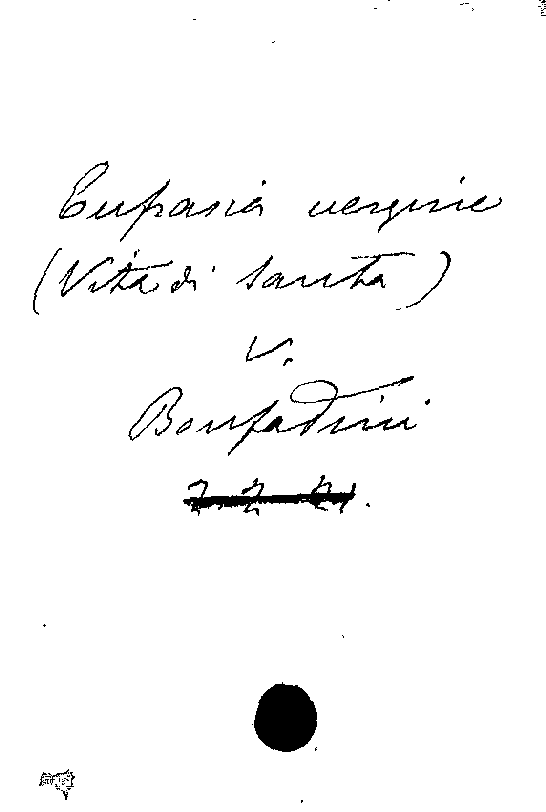 Eufrasia vergine
(Vita di santa)
v.
Bonfadini